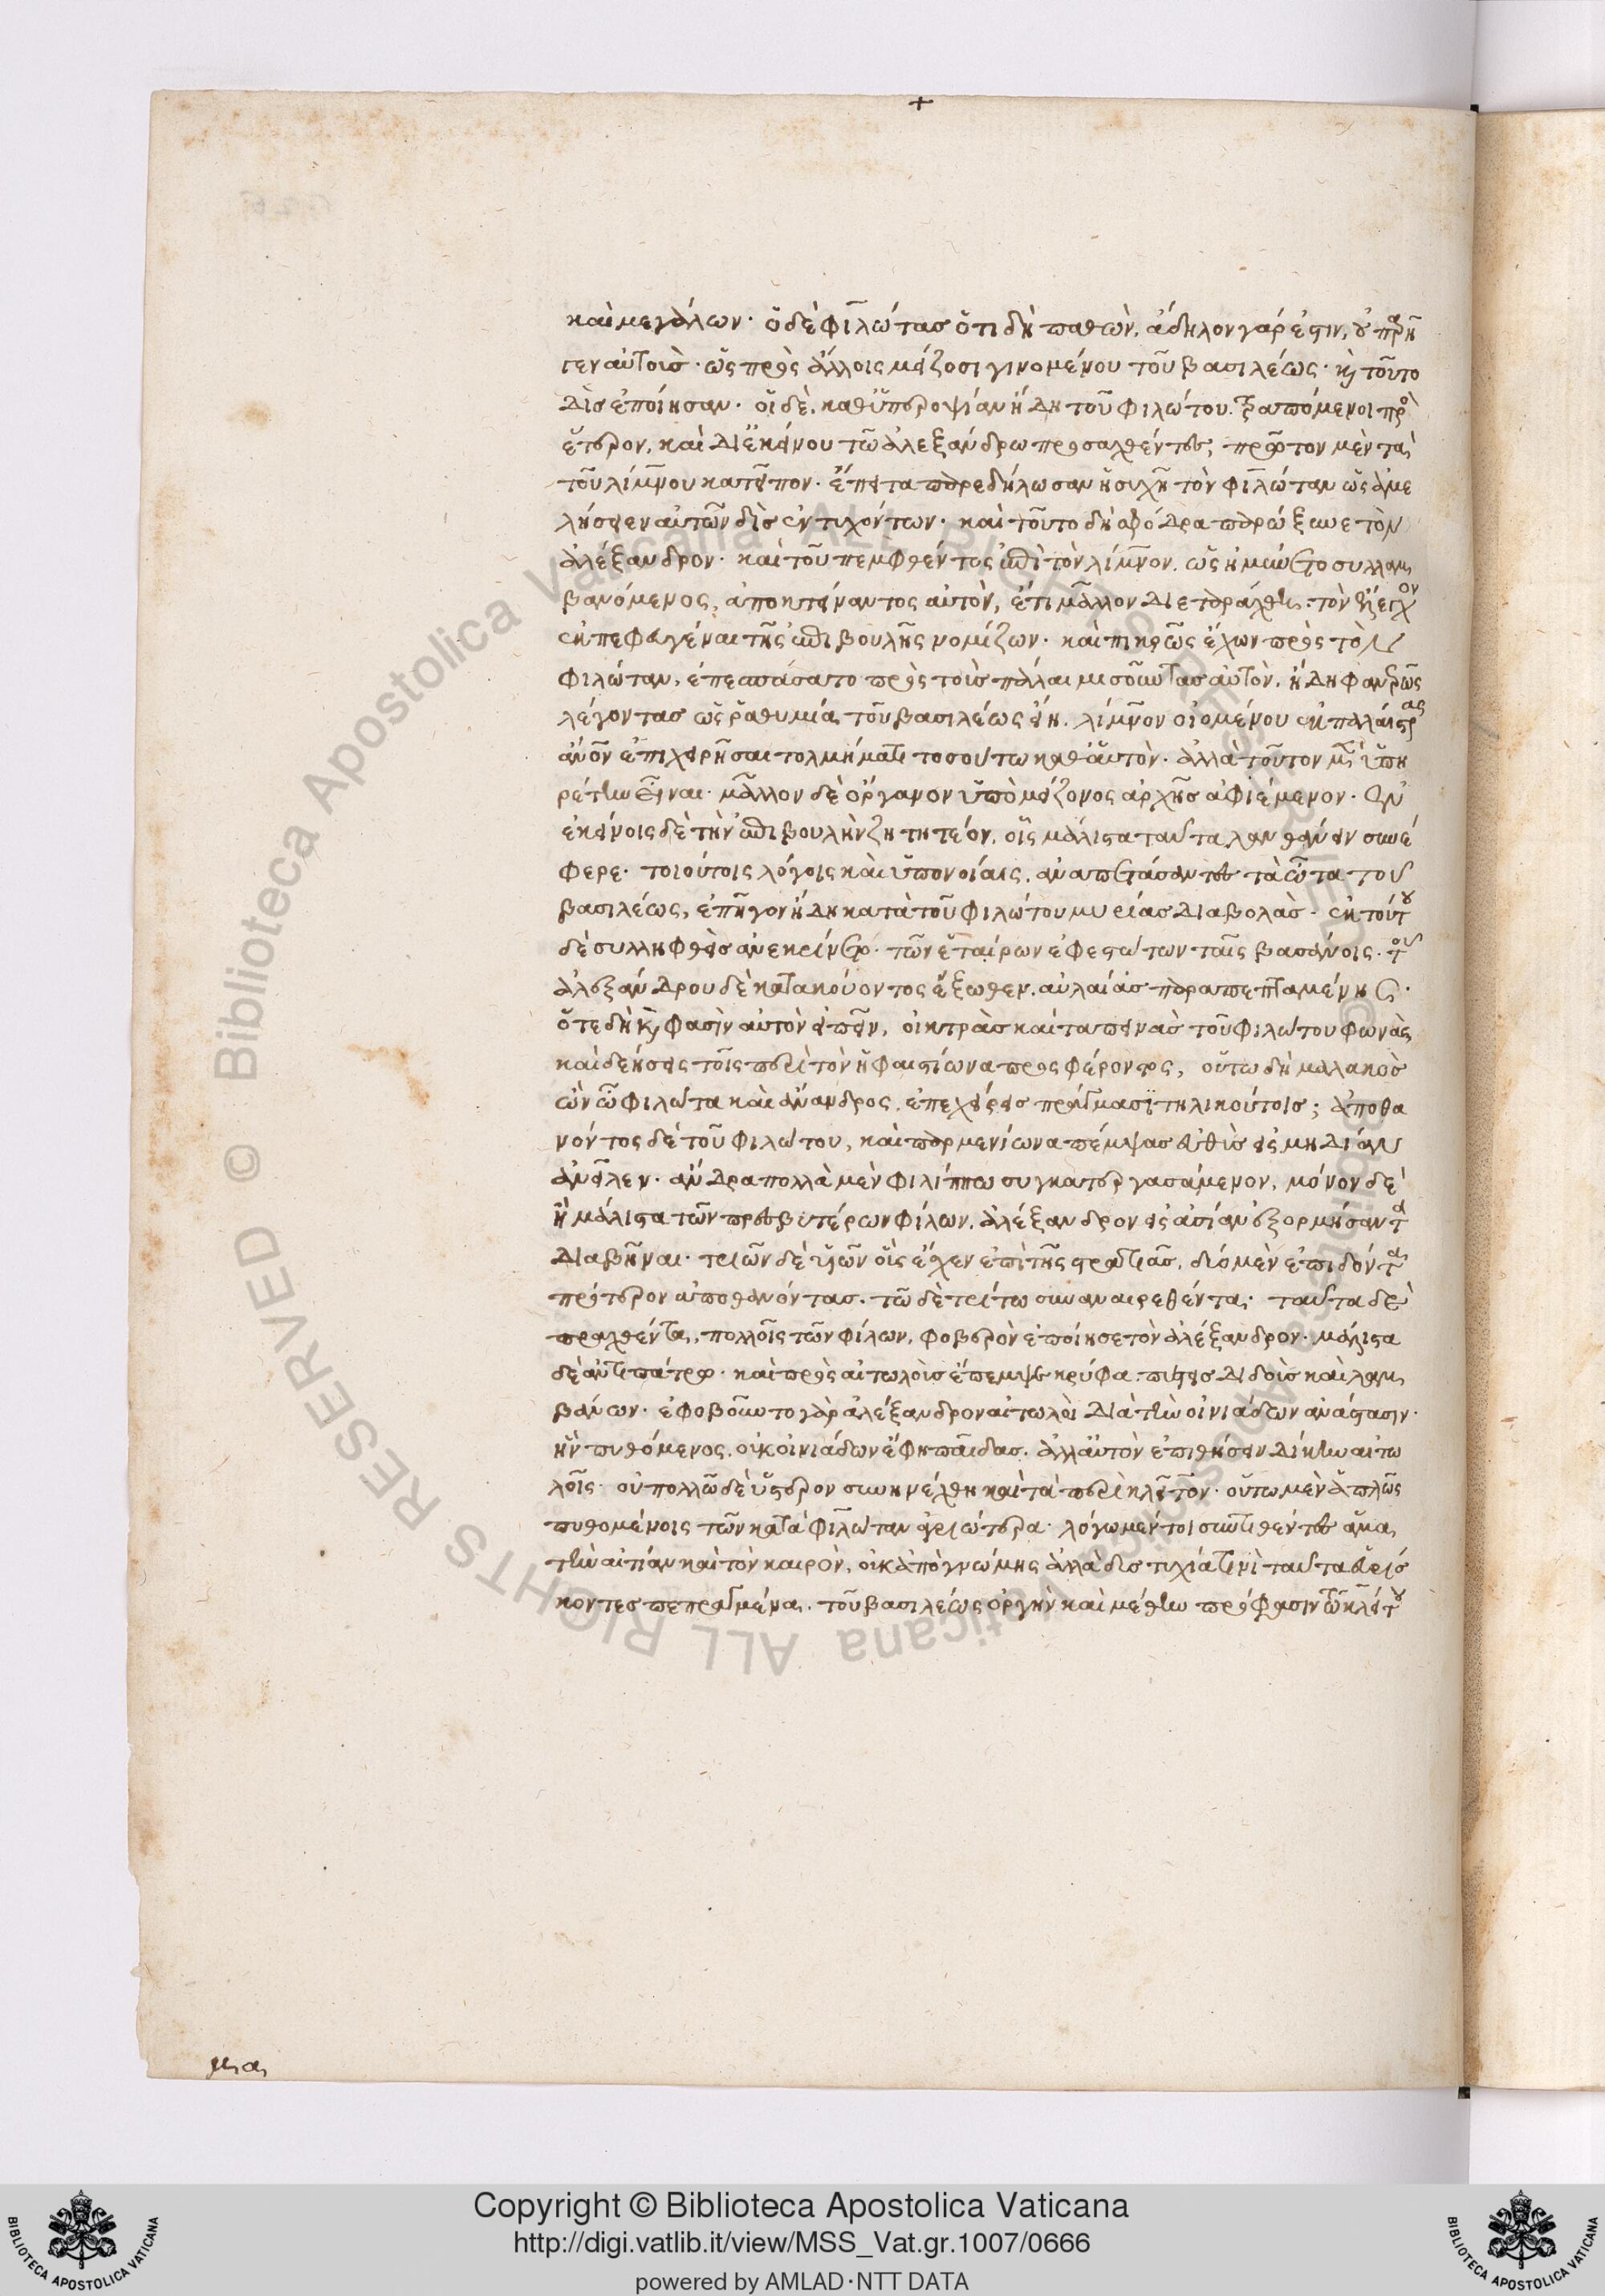 +
καὶ μεγάλων· ὁ δὲ φιλώτας ὅτι δὴ παθών, ἄδηλον γάρ ἐστιν, οὐ παρῆ
γεν αὐτοὺς· ὡς πρὸς ἄλλοις μείζοσι γινομένου τοῦ βασιλέως· καὶ τοῦτο
δὶς ἐποίησαν· οἱ δὲ, καθ' ὑπεροψίαν ἤδη τοῦ φιλώτου τραπόμενοι πρὸς
ἕτερον, καὶ δι' ἐκείνου τῶ ἀλεξάνδρω προσαχθέντες, πρῶτον μὲν τὰ
τοῦ λίμνου κατεῖπον· ἔπειτα παρεδήλωσαν ἡσυχῆ τὸν φιλώταν ὡς ἀμε
λήσειεν αὐτῶν δὶς ἐντυχόντων· καὶ τοῦτο δὴ σφόδρα παρώξυνε τὸν
ἀλέξανδρον· καὶ τοῦ πεμφθέντος ἐπὶ τὸν λίμνον, ὡς ἠμύνετο συλλαμ
βανόμενος, ἀποκτείναντος αὐτὸν, ἔτι μᾶλλον διεταράχθη· τὸν ἔλεγχον
ἐκπεφευγέναι τῆς ἐπιβουλῆς νομίζων· καὶ πικρῶς ἔχων πρὸς τὸν
φιλώταν, ἐπεσπάσατο πρὸς τοὺς πάλαι μισοῦντας αὐτὸν, ἤδη φανερῶς
λέγοντας ὡς ῥαθυμία τοῦ βασιλέως εἴη, λίμνον οἰομένου ἐκ χαλαίστρας
ἄνον ἐπιχειρῆσαι τολμήματι τοσούτω καθ' αὑτὸν· ἀλλὰ τοῦτον μὲν ὑπη
ρέτην εἶναι· μᾶλλον δὲ ὄργανον ὑπὸ μείζονος ἀρχῆς ἀφιέμενον· ἐν
ἐκείνοις δὲ τὴν ἐπιβουλὴν ζητητέον, οἷς μάλιστα ταῦτα λανθάνειν συνέ
φερε· τοιούτοις λόγοις καὶ ὑπονοίαις, ἀναπετάσαντες τὰ ὦτα τοῦ
βασιλέως, ἐπῆγον ἤδη κατὰ τοῦ φιλώτου μυρίας διαβολὰς· ἐκ τούτου
δὲ συλληφθεὶς ἀνεκρίνετο· τῶν ἑταίρων ἐφεστώτων ταῖς βασάνοις· τοῦ
ἀλεξάνδρου δὲ κατακούοντος ἔξωθεν, αὐλαίας παραπεπταμένης·
ὅτε δὴ καὶ φασὶν αὐτὸν εἰπεῖν, οἰκτρὰς καὶ ταπεινὰς τοῦ φιλώτου φωνὰς
καὶ δεήσεις τοῖς περὶ τὸν ἡφαιστίωνα προσφέροντος, οὕτω δὴ μαλακὸς
ὢν ὦ φιλώτα καὶ ἄνανδρος, ἐπεχείρεις πράγμασι τηλικούτοις; ἀποθα
νόντος δὲ τοῦ φιλώτου, καὶ παρμενίωνα πέμψας εὐθὺς εἰς μηδίαν
ἀνεῖλεν· ἄνδρα πολλὰ μὲν φιλίππω συγκατεργασάμενον, μόνον δὲ
ἢ μάλιστα τῶν πρεσβυτέρων φίλων, ἀλέξανδρον εἰς ἀσίαν ἐξορμήσαντα
διαβῆναι· τριῶν δὲ υἱῶν οὓς ἔσχεν ἐπὶ τῆς στρατιᾶς, δύο μὲν ἐπιδόντα
πρότερον ἀποθανόντας, τῶ δὲ τρίτω συναναιρεθέντα· ταῦτα δὲ
πραχθέντα, πολλοῖς τῶν φίλων, φοβερὸν ἐποίησε τὸν ἀλέξανδρον· μάλιστα
δὲ ἀντιπάτρω· καὶ πρὸς αἰτωλοὺς ἔπεμψε κρύφα, πίστεις διδοὺς καὶ λαμ
βάνων· ἐφοβοῦντο γὰρ ἀλέξανδρον αἰτωλοὶ διὰ τὴν οἰνιάδων ἀνάστασιν·
ἣν πυθόμενος, οὐκ οἰνιάδων ἔφη παῖδας, ἀλλ' αὐτὸν ἐπιθήσειν δίκην αἰτω
λοῖς· οὐ πολλῶ δὲ ὕστερον συνηνέχθη καὶ τὰ περὶ κλεῖτον· οὕτω μὲν ἁπλῶς
πυθομένοις τῶν κατὰ φιλώταν ἀγριώτερα· λόγω μέντοι συντιθέντες ἅμα
τὴν αἰτίαν καὶ τὸν καιρὸν, οὐκ ἀπὸ γνώμης ἀλλὰ δυστυχία τινὶ ταῦτα εὑρίσ
κοντες πεπραγμένα, τοῦ βασιλέως ὀργὴν καὶ μέθην πρόφασιν τῶ κλείτου
μα
Copyright © Biblioteca Apostolica Vaticana
http://digi.vatlib.it/view/MSS_Vat.gr.1007/0666
powered by AMLAD·NTT DATA
BIBLIOTECA APOSTOLICA VATICANA
BIBLIOTECA APOSTOLICA VATICANA
© Biblioteca Apostolica Vaticana ALL RIGHTS RESERVED